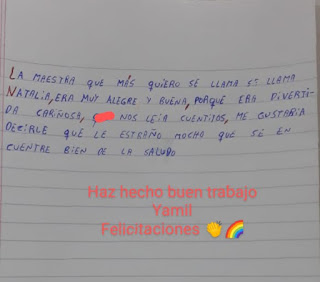 LA MAESTRA QUE MÁS QUIERO SE LLAMA SS LLAMA
NATALIA, ERA MUY ALEGRE Y BUENA, PORQUÉ ERA DIVERTI-
DA CARIÑOSA, NOS LEIA CUENTIOS, ME GUSTARIA
DECIRLE QUÉ LE ESTRAÑO MOCHO QUÉ SE EN
CUENTRE BIEN DE LA SALUDO
Haz hecho buen trabajo
Yamil
Felicitaciones 👏🌈